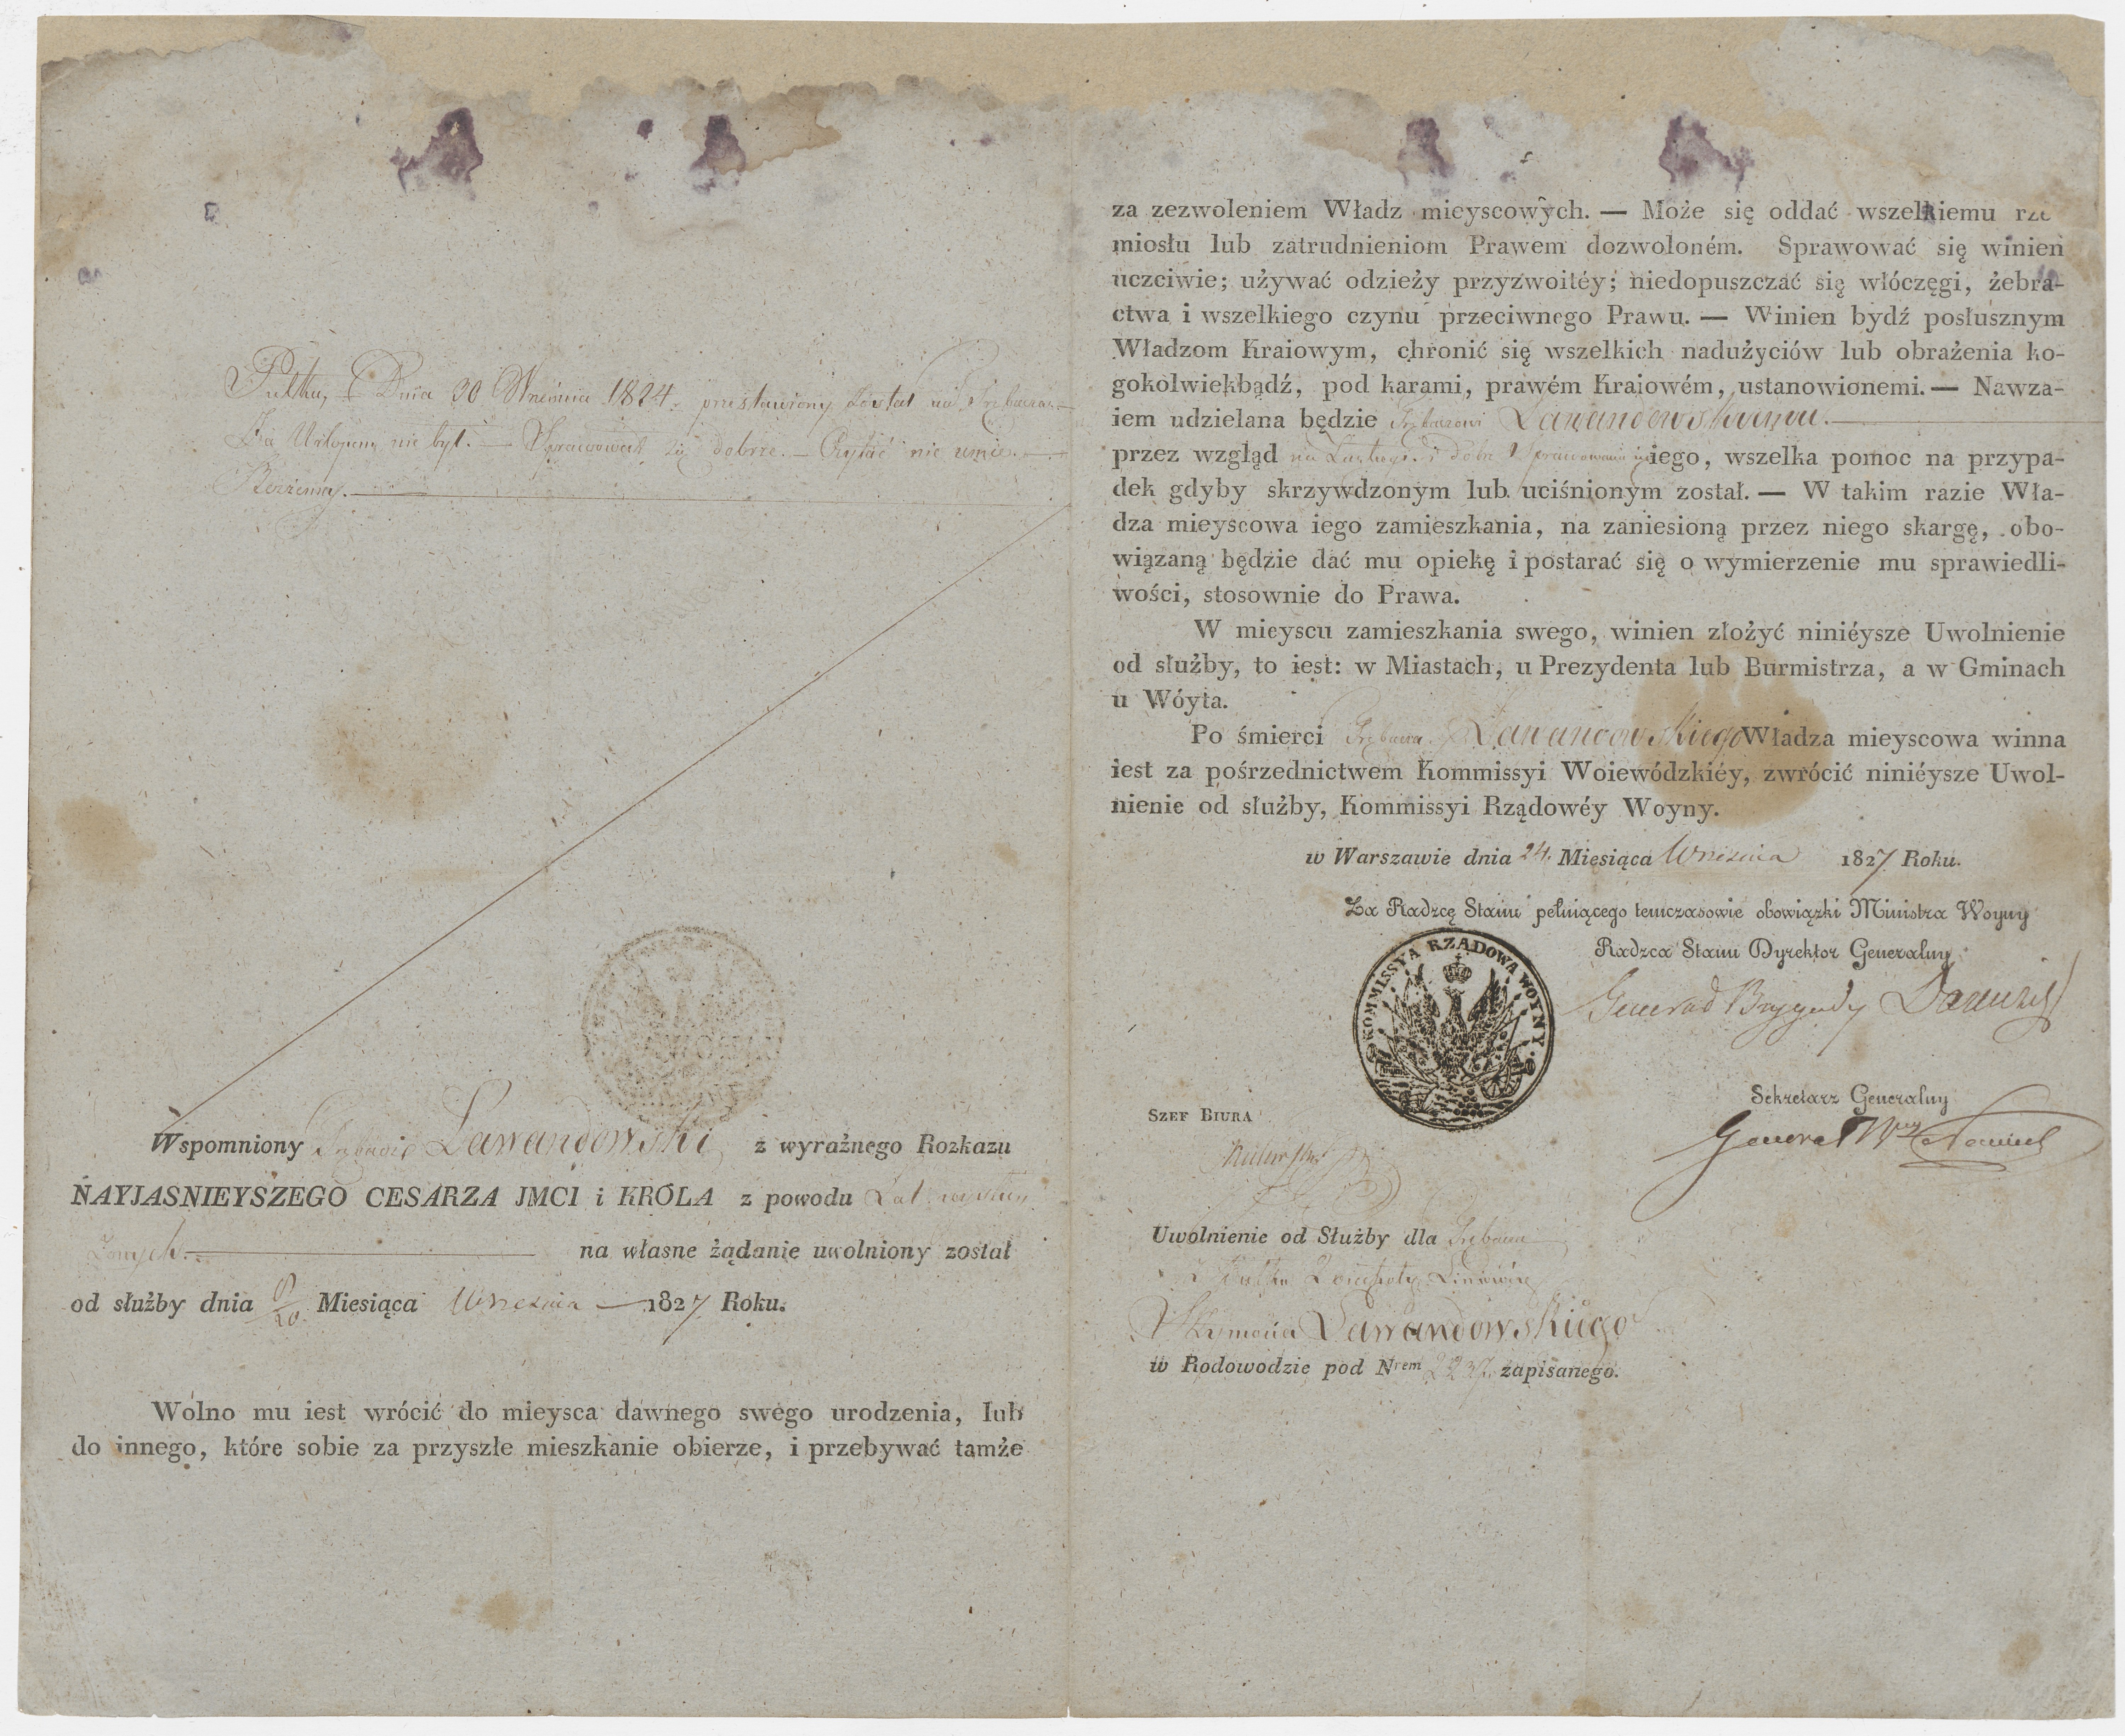 Pułku, Dnia 30 Września 1824. przestawiony został na Trębacza.—
Na Urlopie nie był.— Sprawował się dobrze.— Czytać nie umie.—
Wspomniony Trębacz Lawandowski z wyraźnego Rozkazu
NAYJASNIEYSZEGO CESARZA JMCI i KRÓLA z powodu Lat wysłu
żonych.— na własne żądanie uwolniony został
od służby dnia 8/20 Miesiąca Września — 1827 Roku.
Wolno mu iest wrócić do mieysca dawnego swego urodzenia, lub
do innego, które sobie za przyszłe mieszkanie obierze, i przebywać tamże
za zezwoleniem Władz mieyscowych. — Może się oddać wszelkiemu rze
miosłu lub zatrudnieniom Prawem dozwoloném. Sprawować się winien
uczciwie; używać odzieży przyzwoitéy; niedopuszczać się włóczęgi, żebra-
ctwa i wszelkiego czynu przeciwnego Prawu. — Winien bydź posłusznym
Władzom Kraiowym, chronić się wszelkich nadużyciów lub obrażenia ko-
gokolwiekbądź, pod karami, prawém Kraiowém, ustanowionemi. — Nawza-
iem udzielana będzie Trębaczowi Lawandowskiemu.—
przez wzgląd na Zasługi i dobre Sprawowanie się iego, wszelka pomoc na przypa-
dek gdyby skrzywdzonym lub uciśnionym został. — W takim razie Wła-
dza mieyscowa iego zamieszkania, na zaniesioną przez niego skargę, obo-
wiązaną będzie dać mu opiekę i postarać się o wymierzenie mu sprawiedli-
wości, stosownie do Prawa.
W mieyscu zamieszkania swego, winien złożyć niniéysze Uwolnienie
od służby, to iest: w Miastach, u Prezydenta lub Burmistrza, a w Gminach
u Wóyta.
Po śmierci Trębacza Lawandowskiego Władza mieyscowa winna
iest za pośrzednictwem Kommissyi Woiewódzkiéy, zwrócić niniéysze Uwol-
nienie od służby, Kommissyi Rządowéy Woyny.
w Warszawie dnia 24. Miesiąca Września 1827 Roku.
Za Radzcę Stanu pełniącego temczasowie obowiązki Ministra Woyny
Radzca Stanu Dyrektor Generalny
KOMMISSYA RZĄDOWA WOYNY
Generał Brygady
Sekretarz Generalny
SZEF BIURA
Generał
Uwolnienie od Służby dla Trębacza
z Pułku Piechoty Liniowéy
Szymona Lawandowskiego
w Rodowodzie pod Nrem zapisanego.